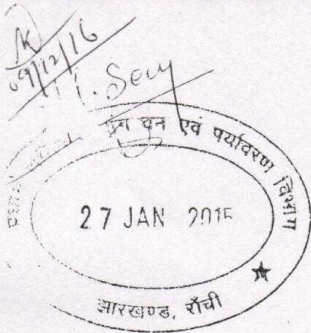 09/12/16
Secy
वन एवं पर्यावरण विभाग
27 JAN 2015
झारखण्ड, राँची